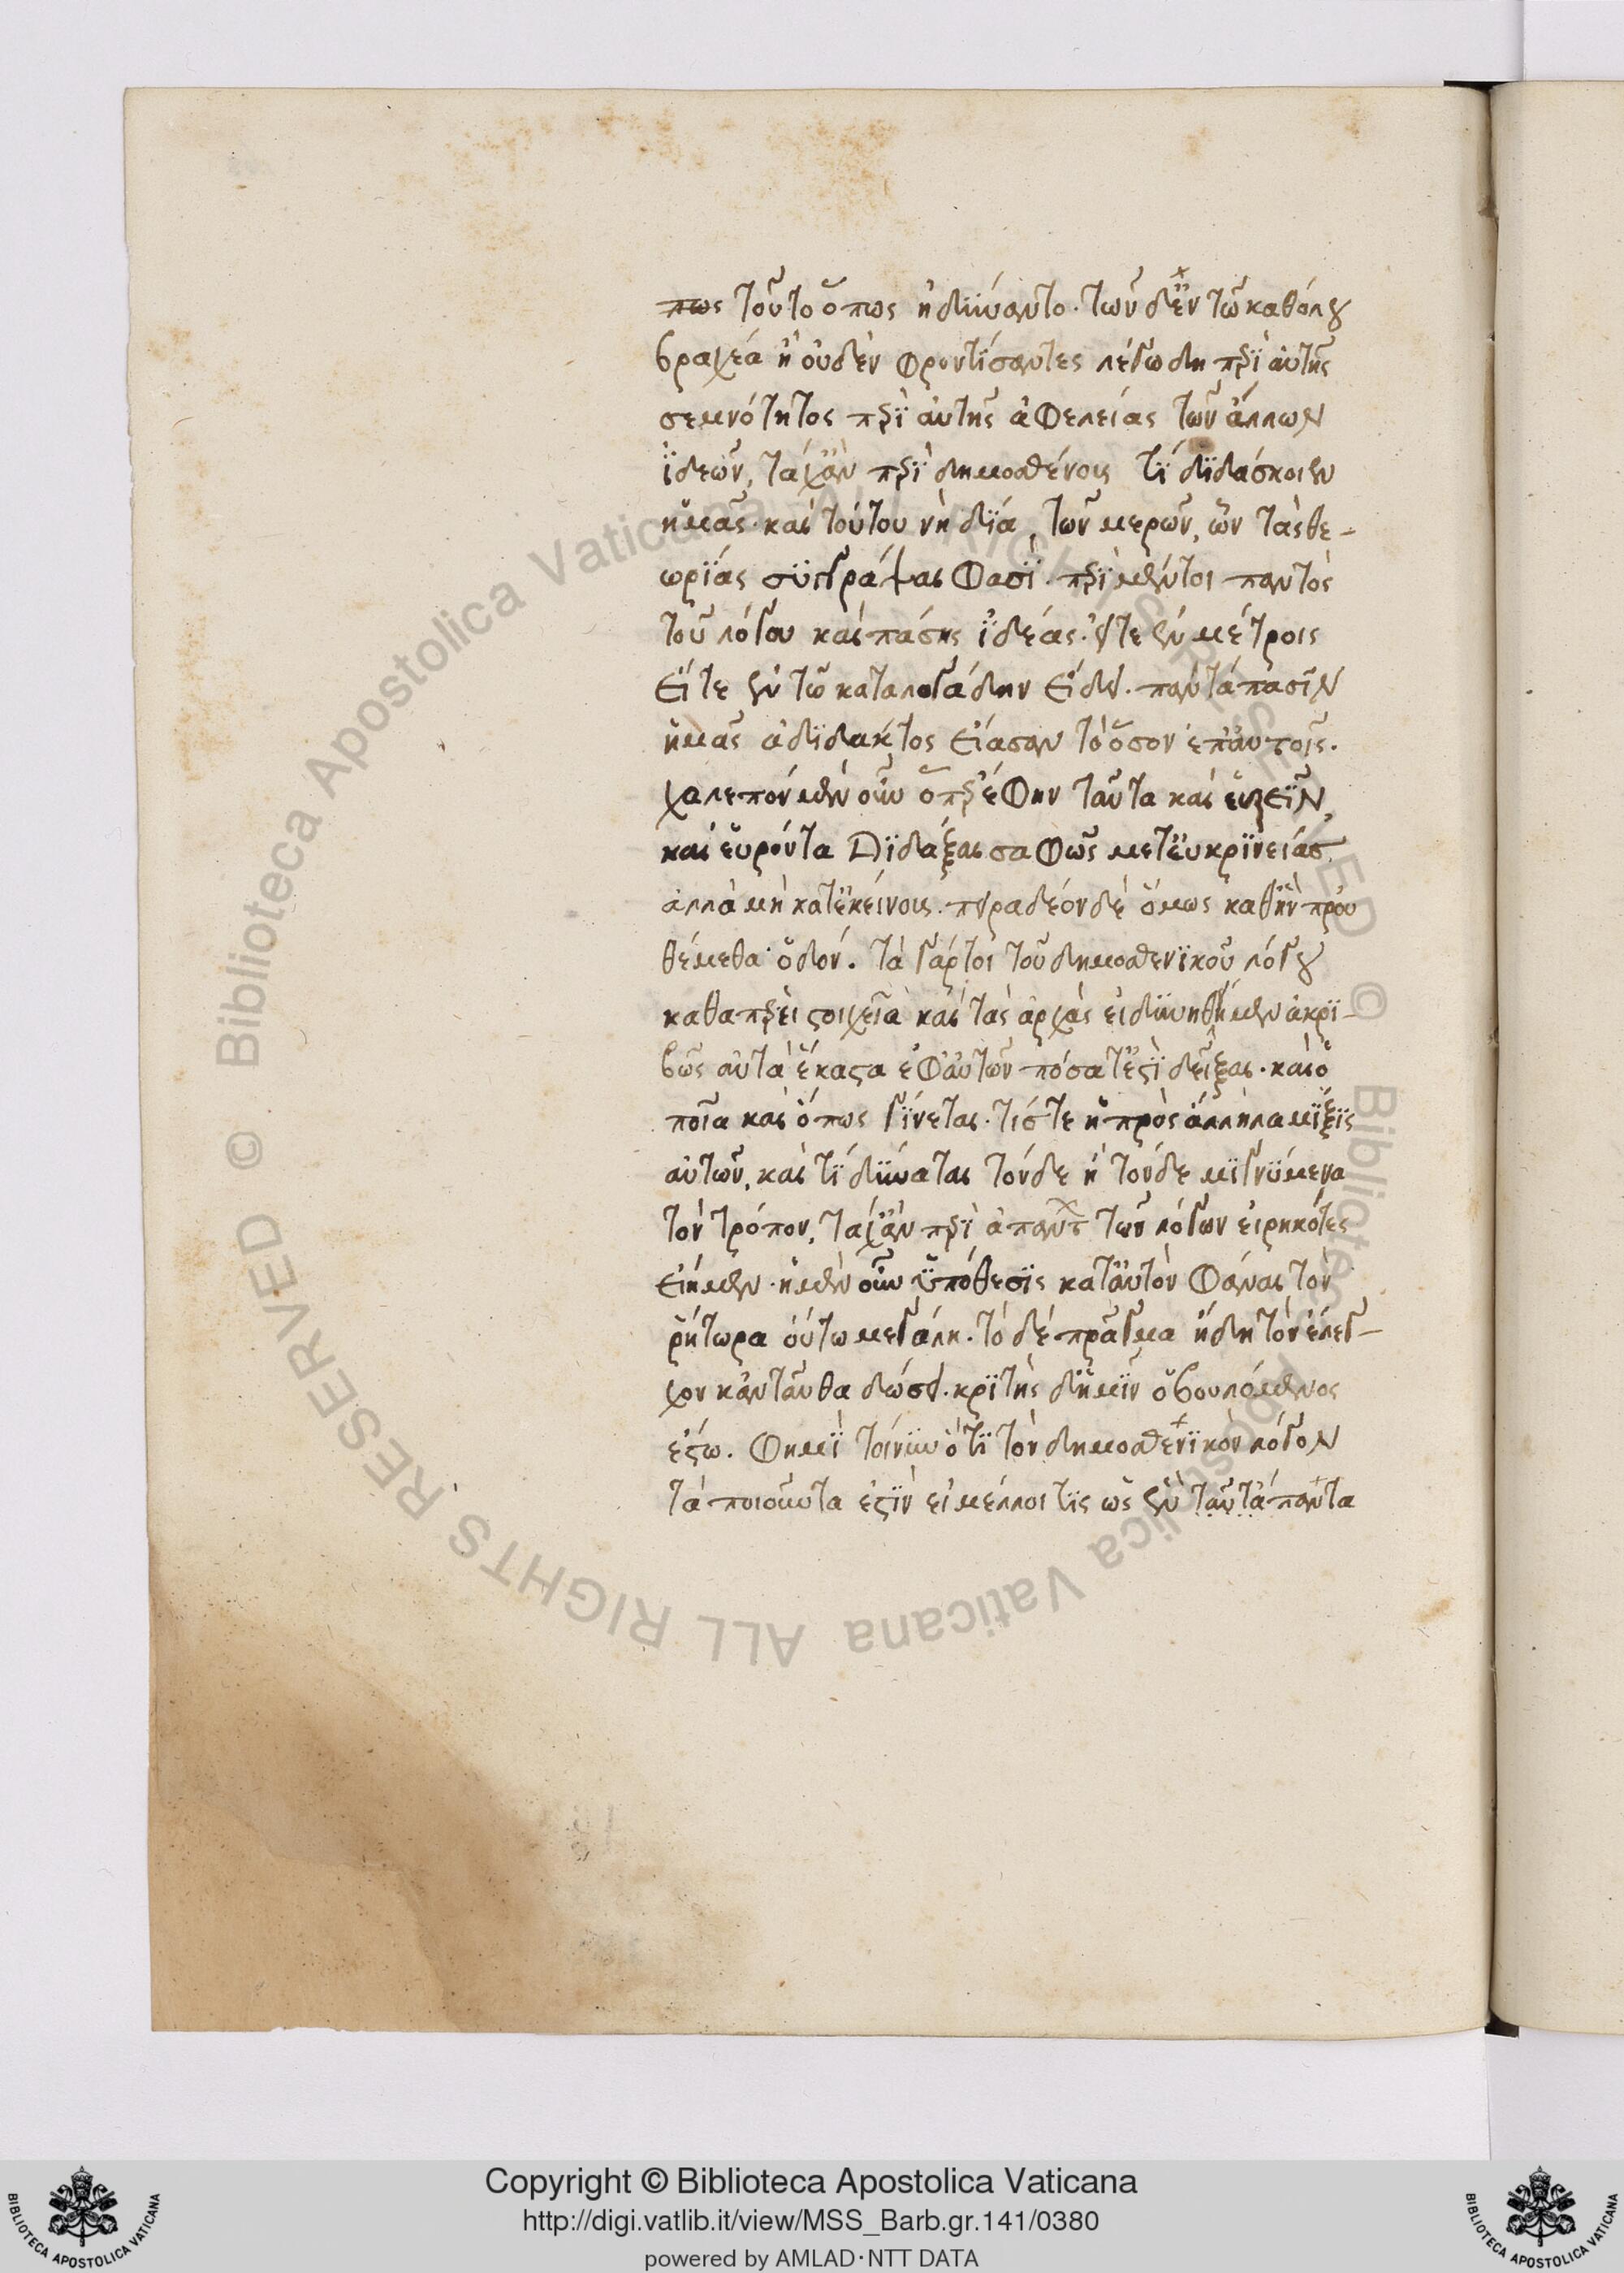 πως τοῦτο ὅπως ἠδύναντο. τῶν δ' ἐν τῶ καθόλου
βραχέα ἢ οὐδὲν φροντίσαντες λέγω δη περὶ αὐτῆς
σεμνότητος περὶ αὐτῆς ἀφελείας τῶν ἄλλων
ἰδεῶν, τάχ' ἂν περὶ δημοσθένους τί διδάσκοιεν
ἡμᾶς. καὶ τούτου νὴ δία, τῶν μερῶν, ὧν τὰς θε-
ωρίας συγγράψαι φασί. περὶ μέντοι παντὸς
τοῦ λόγου καὶ πάσης ἰδέας. εἴτε ἐν μέτροις
εἴτε ἐν τῶ καταλογάδην εἴδει. παντάπασιν
ἡμᾶς ἀδιδάκτος εἴασαν τὸ ὅσον ἐπ' αὐτοῖς.
χαλεπὸν μὲν οὖν ὅπερ ἔφην ταῦτα καὶ εὑρεῖν,
καὶ εὑρόντα διδάξαι σαφῶς μετ' εὐκρινείας
ἀλλὰ μὴ κατ' ἐκείνους. πειρατέον δὲ ὅμως καθ' ἣν πρου
θέμεθα ὁδόν. τὰ γάρ τοι τοῦ δημοσθενικοῦ λόγου
καθαπερεὶ στοιχεῖα καὶ τὰς ἀρχὰς εἰ δυνηθείημεν ἀκρι-
βῶς αὐτὰ ἕκαστα ἐφ' αὑτῶν πόσα τ' ἐστὶ δεῖξαι. καὶ ὁ
ποῖα καὶ ὅπως γίνεται. τίς τε ἡ πρὸς ἄλληλα μῖξις
αὐτῶν, καὶ τί δύναται τόνδε ἢ τόνδε μιγνύμενα
τὸν τρόπον, τάχ' ἂν περὶ ἁπάντ τῶν λόγων εἰρηκότες
εἴημεν. ἡ μὲν οὖν ὑπόθεσις κατ' αὐτὸν φάναι τὸν
ῥήτωρα οὕτω μεγάλη. τὸ δὲ πρᾶγμα ἤδη τὸν ἔλεγ-
χον κἀνταῦθα δώσει. κριτὴς δ' ἡμῖν ὁ βουλόμενος
ἔστω. φημὶ τοίνυν ὅτι τὸν δημοσθενικὸν λόγον
τὰ ποιοῦντα ἐστὶν εἰ μέλλοι τις ὡς ἓν ταῦτα πάντα
Copyright © Biblioteca Apostolica Vaticana
http://digi.vatlib.it/view/MSS_Barb.gr.141/0380
powered by AMLAD·NTT DATA
BIBLIOTECA APOSTOLICA VATICANA
BIBLIOTECA APOSTOLICA VATICANA
© Biblioteca Apostolica Vaticana ALL RIGHTS RESERVED
© Biblioteca Apostolica Vaticana ALL RIGHTS RESERVED